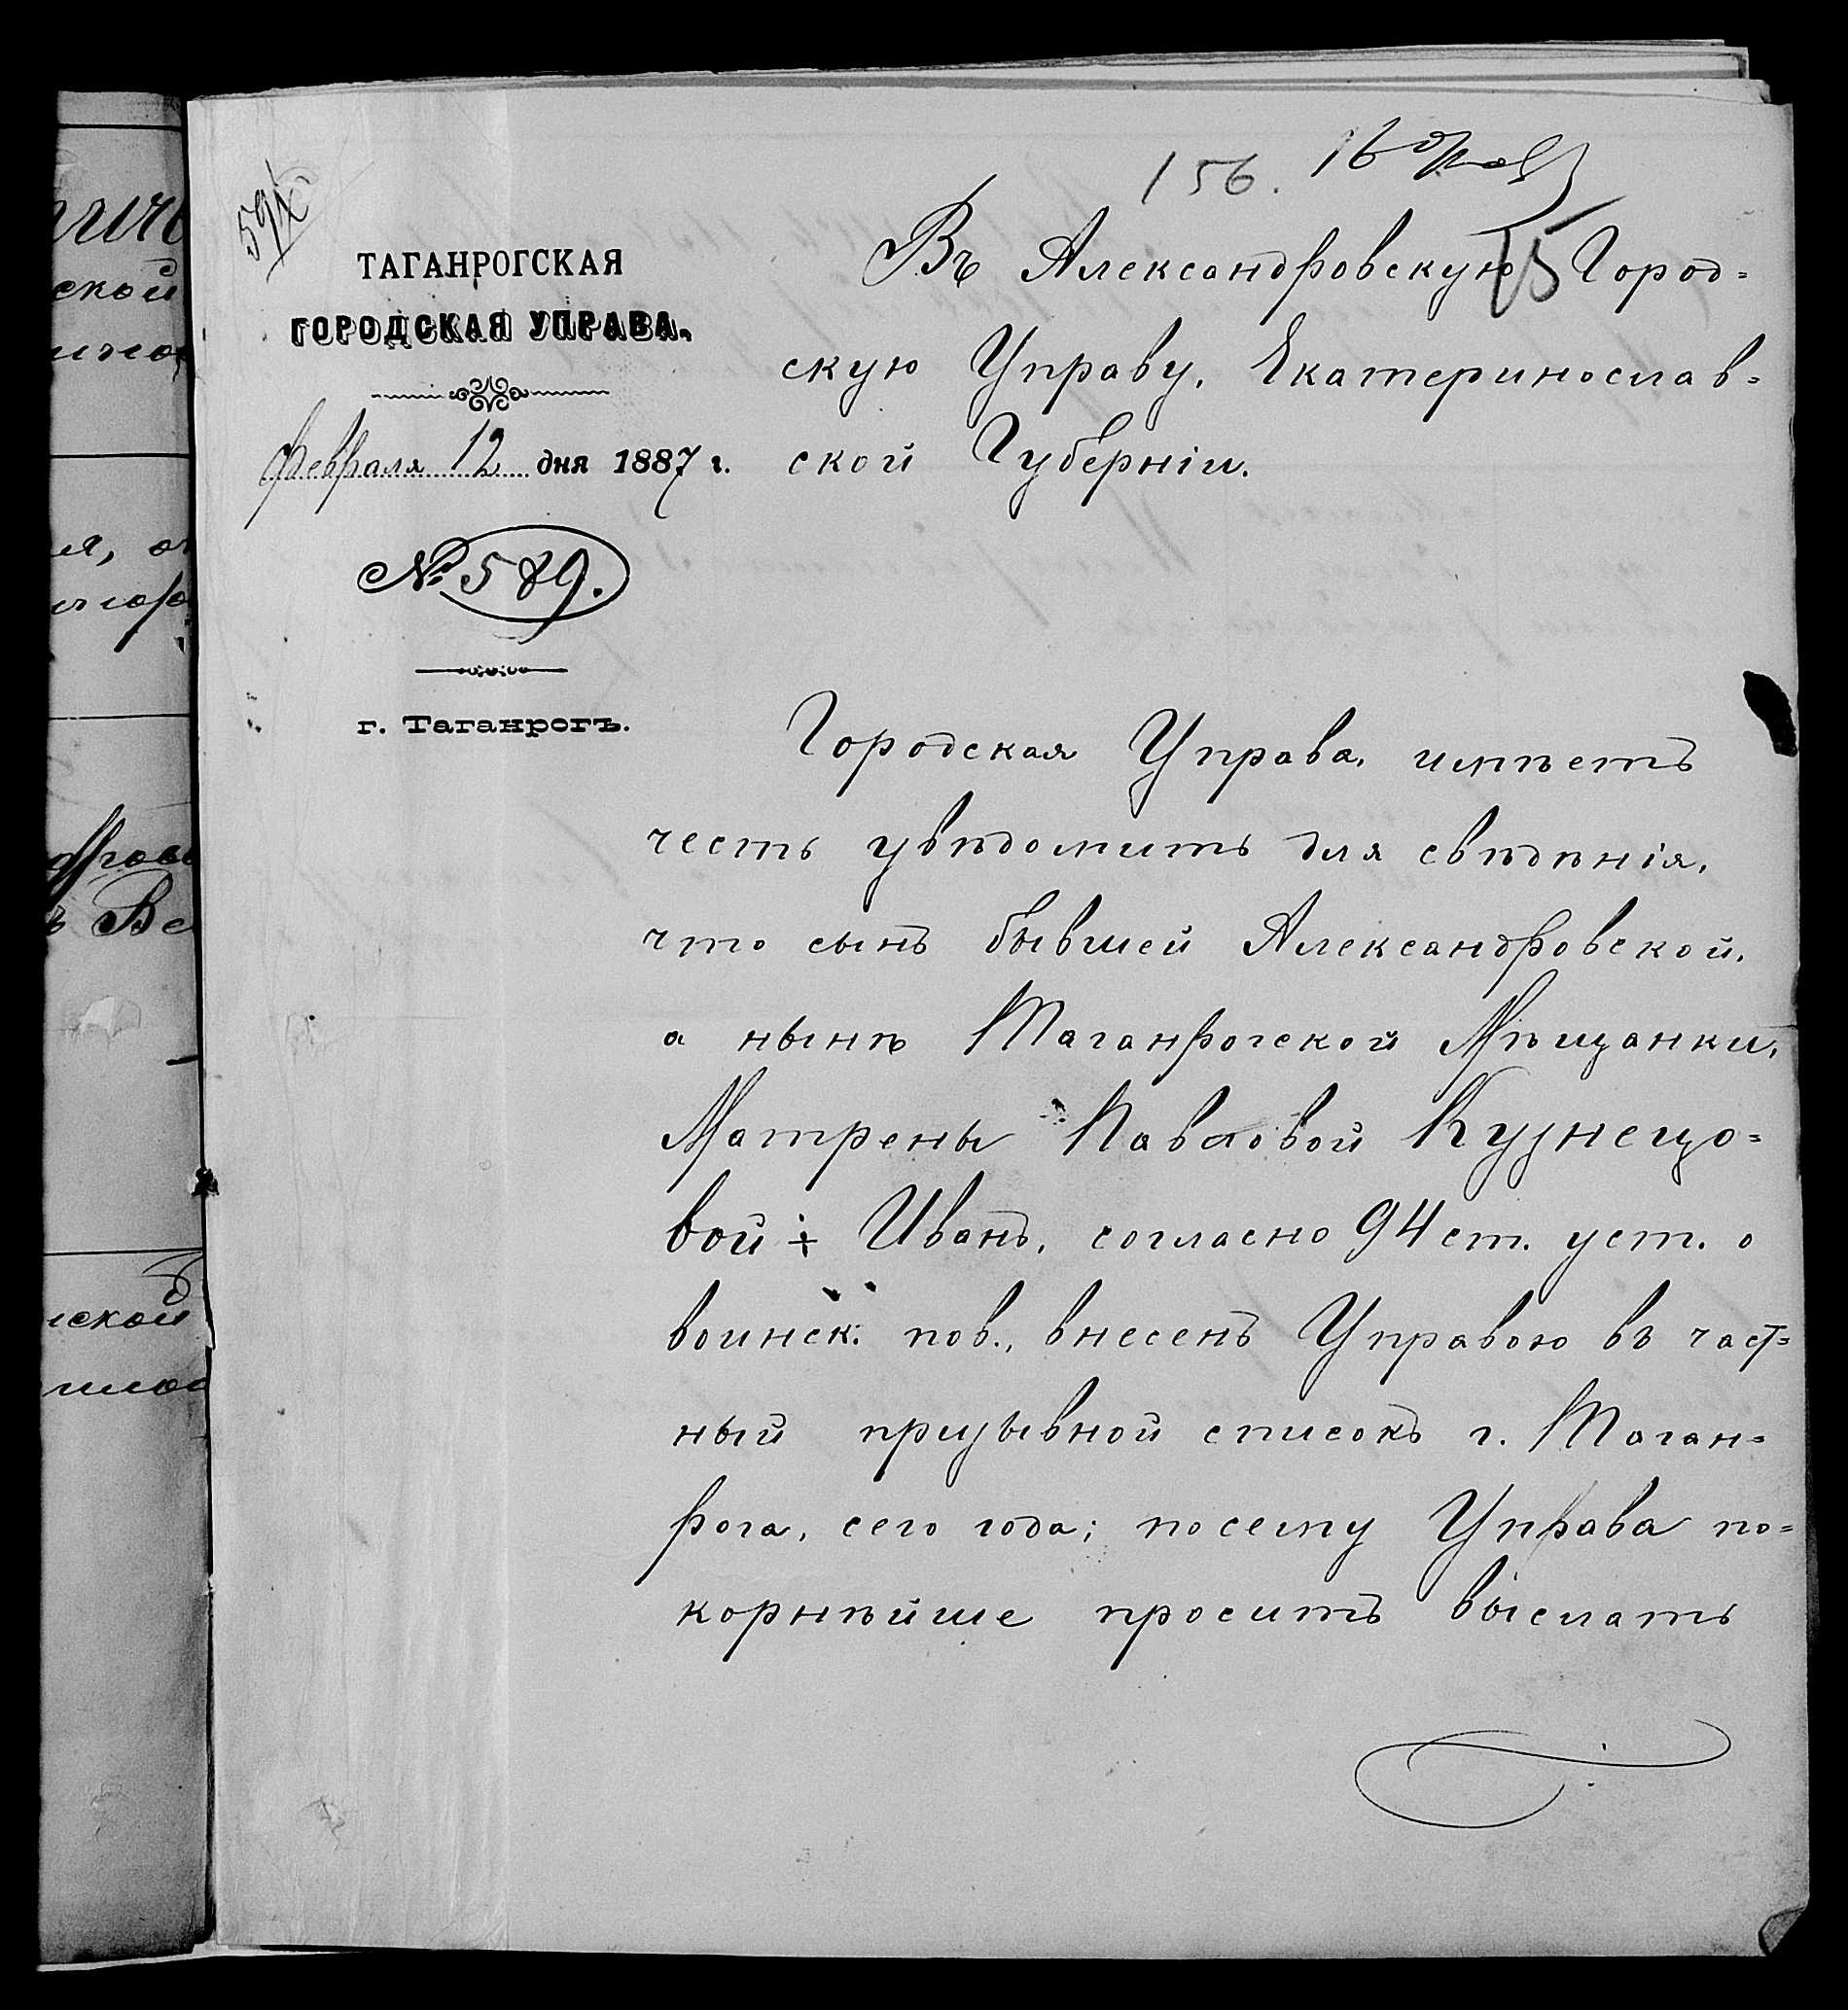 156. 16
15
ТАГАНРОГСКАЯ
ГОРОДСКАЯ УПРАВА.
Февраля 12 дня 1887 г.
№ 589.
г. Таганрогъ.
Въ Александровскую Город=
скую Управу, Екатеринослав=
ской Губерніи.
Городская Управа, имѣетъ
честь увѣдомить для свѣдѣнія,
что сынъ бывшей Александровской,
а нынѣ Таганрогской Мѣщанки,
Матрены Павловой Кузнецо=
вой ÷ Иванъ, согласно 94 ст. уст. о
воинск. пов., внесенъ Управою въ част=
ный призывной списокъ г. Таган=
рога, сего года; посему Управа по=
корнѣйше проситъ выслать
ской
я,
Ве